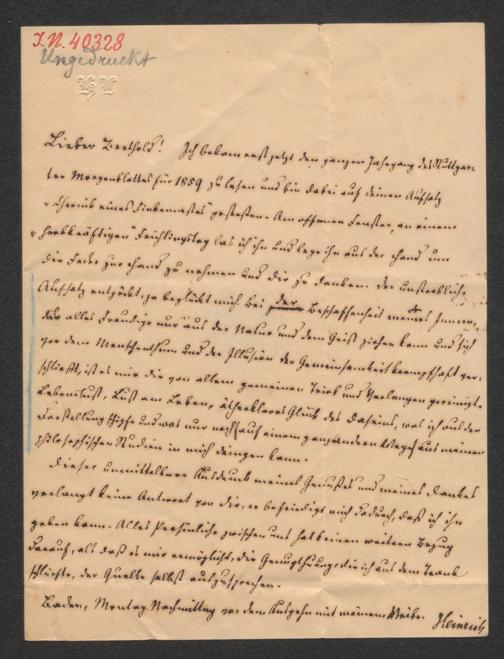 I.N. 40328
Ungedruckt
Lieber Berthold! Ich bekam erst jetzt den ganzen Jahrgang des Stuttgar-
ter Morgenblattes für 1859 zu lesen und bin dabei auf deinen Aufsatz
eines Finkennestes" gestoßen. Am offenen Fenster, an einem
herbkräftigen Frühlingstag las ich ihn und lege ihn aus der Hand um
die Feder zur Hand zu nehmen und dir zu danken. Der unsterbliche
Aufsatz entzückt, ja beglückt mich. Bei der Beschaffenheit meines Innern,
das alles Freudige nur aus der Natur und dem Geist ziehen kann und sich
vor dem Menschenthum und der Illusion der Gemeinsamkeit krampfhaft ver-
schließt, ist es mir die von allem gemeinen Trieb und Verlangen gereinigte
Lebenslust, Lust am Leben, ätherklares Glück des Daseins, was ich aus der
Darstellung schöpfe und was nur noch auf einem ganz andern Wege aus meinen
philosophischen Studien in mich dringen kann.
Dieser unmittelbare Ausdruck meines Genußes und meines Dankes
verlangt keine Antwort von dir, er befriedigt mich dadurch, daß ich ihn
geben kann. Alles Persönliche zwischen uns hat keinen weitern Bezug
darauf, als daß es mir ermöglicht, die Genugthuung die ich aus dem Trank
schlürfte, der Quelle selbst auszusprechen.
Baden, Montag Nachmittag vor dem Ausgehn mit meinem Weibe. Heinrich